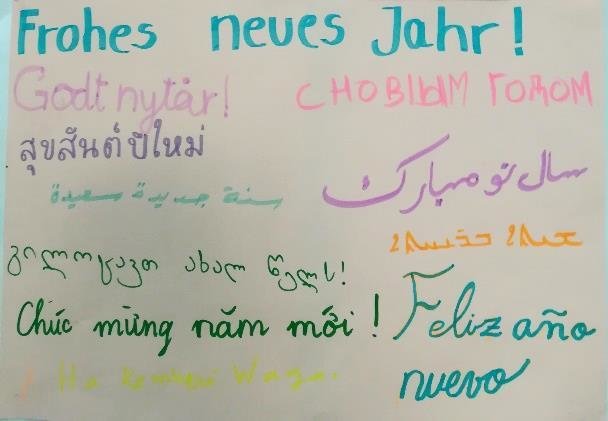 Frohes neues Jahr!
Godt nytår!
С НОВЫЫМ ГОДОМ
สุขสันต์ปีใหม่
سال نو مبارک
سنة جديدة سعيدة
გილოცავთ ახალ წელს!
Chúc mừng năm mới!
Feliz año
nuevo